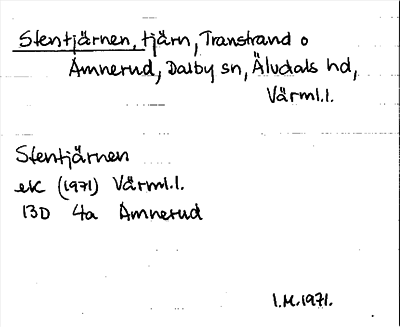 Stentjärnen, tjärn, Transtrand o
Åmnerud, Dalby sn, Älvdals hd,
Värml.l.
Stentjärnen
ek (1971) Värml.l.
13D 4a Åmnerud
I.M.1971.